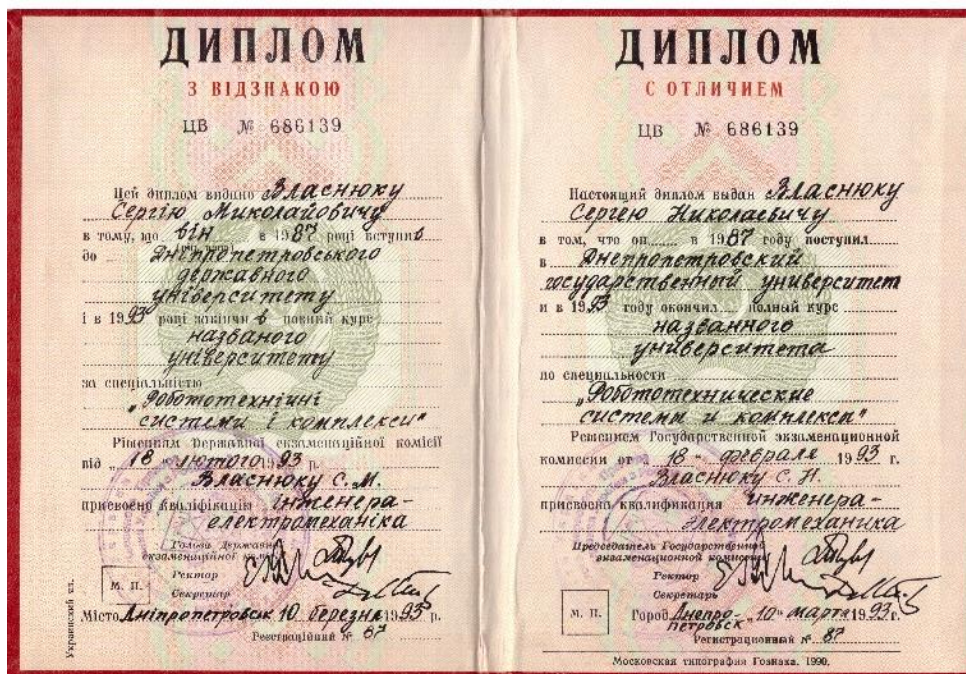 ДИПЛОМ
З ВІДЗНАКОЮ
ЦВ № 686139
Цей диплом видано Власнюку
Сергію Миколайовичу
в тому, що він в 1987 році вступив
до Дніпропетровського
державного
університету
і в 1993 році закінчив повний курс
названого
університету
за спеціальністю
„Робототехнічні
системи і комплекси"
Рішенням Державної екзаменаційної комісії
від „18" лютого 1993 р.
Власнюку С. М.
присвоєно кваліфікацію інженера-
електромеханіка
Голова Державної
екзаменаційної комісії
Ректор
Секретар
М. П.
Місто Дніпропетровськ 10 березня 1993 р.
Реєстраційний № 87
Украинский яз.
ДИПЛОМ
С ОТЛИЧИЕМ
ЦВ № 686139
Настоящий диплом выдан Власнюку
Сергею Николаевичу
в том, что он в 1987 году поступил
в Днепропетровский
государственный университет
и в 1993 году окончил полный курс
названного
университета
по специальности
„Робототехнические
системы и комплексы"
Решением Государственной экзаменационной
комиссии от „18" февраля 1993 г.
Власнюку С. Н.
присвоена квалификация инженера-
электромеханика
Председатель Государственной
экзаменационной комиссии
Ректор
Секретарь
М. П.
Город Днепро-
петровск „10" марта 1993 г.
Регистрационный № 87
Московская типография Гознака. 1990.